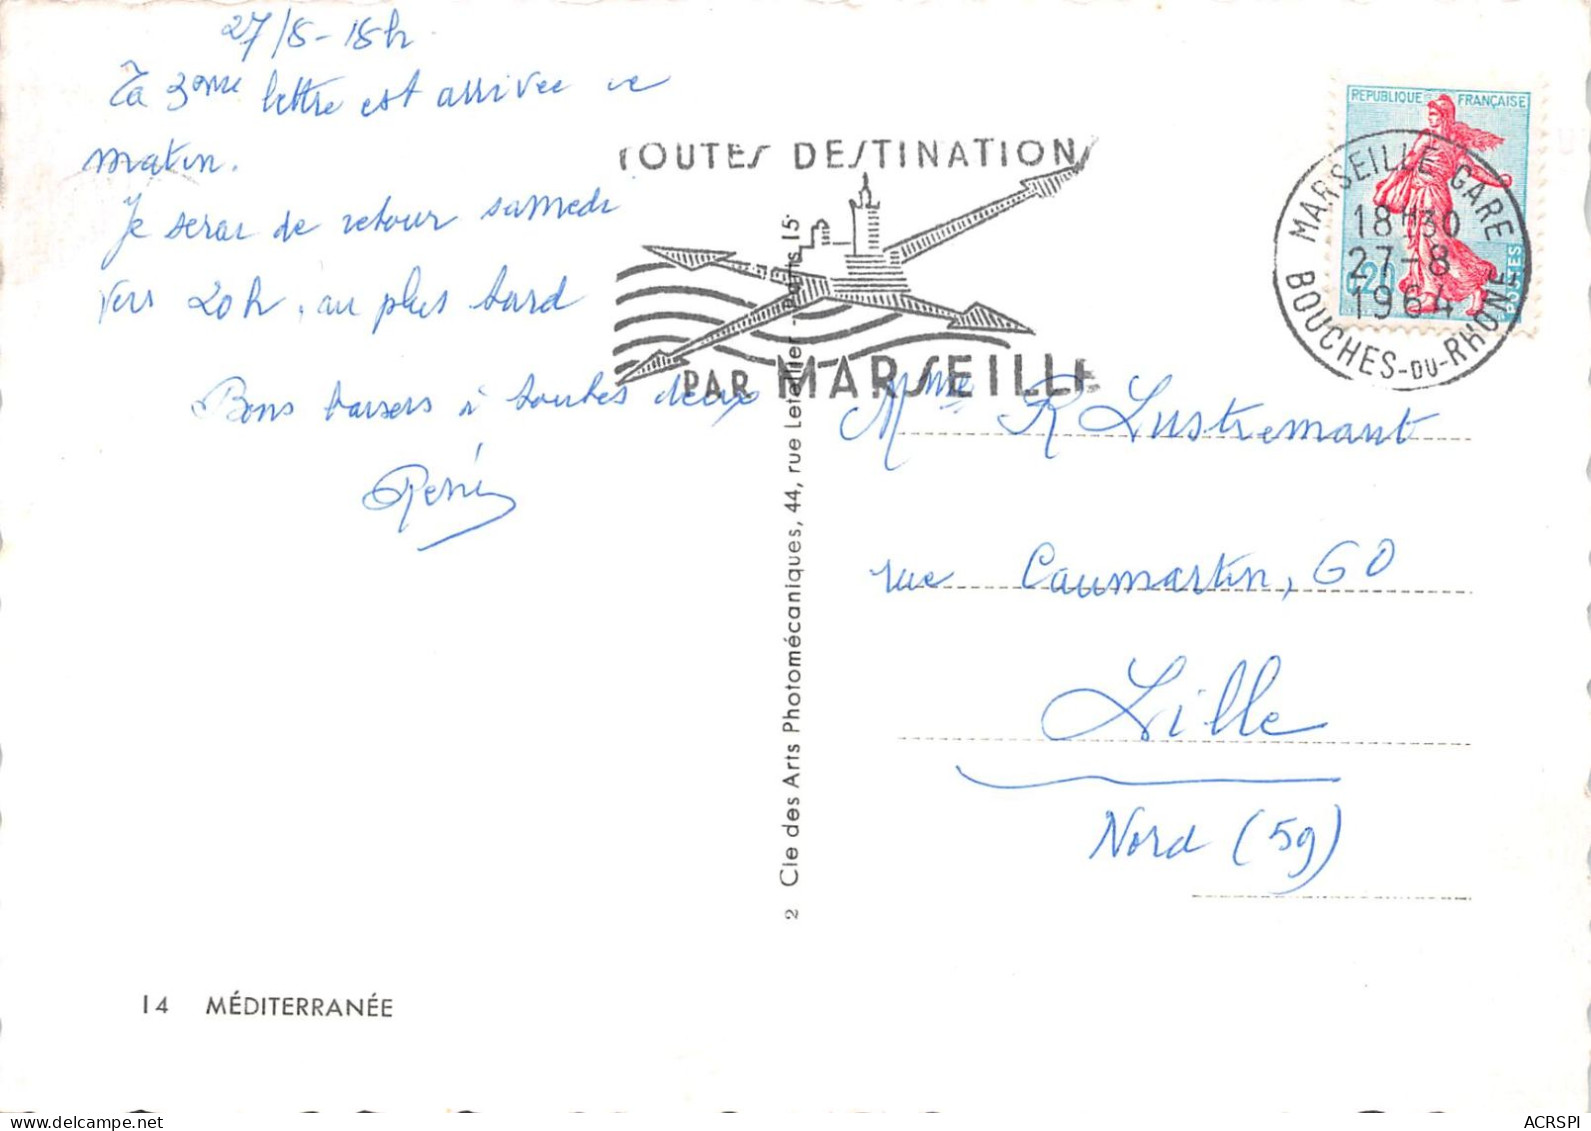 27/8 - 18h
Ta 3ème lettre est arrivée ce
matin.
Je serai de retour samedi
vers 20h, au plus tard
Bons baisers à toutes deux
René
TOUTES DESTINATIONS
PAR MARSEILLE
REPUBLIQUE FRANÇAISE
0,20
POSTES
MARSEILLE GARE
18H30
27-8
1964
BOUCHES-DU-RHONE
Mme R Lustremant
rue Caumartin, 60
Lille
Nord (59)
2 Cie des Arts Photomécaniques, 44, rue Letellier - Paris 15e
14 MÉDITERRANÉE
ACRSPI